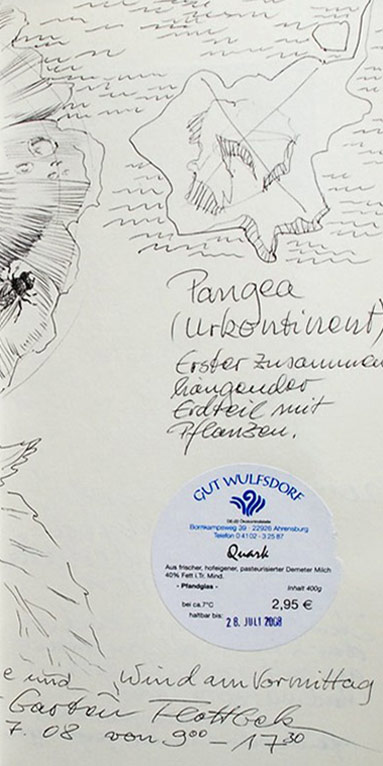 Pangea
(Urkontinent)
Erster zusammen
hängender
Erdteil mit
Pflanzen.
GUT WULFSDORF
Bornkampsweg 39 · 22926 Ahrensburg
Telefon 0 41 02 - 3 25 87
Quark
Aus frischer, hofeigener, pasteurisierter Demeter Milch
40% Fett i.Tr. Mind.
- Pfandglas - Inhalt 400g
bei ca.7°C 2,95 €
haltbar bis: 28. JULI 2008
e und Wind am Vormittag
Garten Flottbek
7. 08 von 9⁰⁰ - 17³⁰